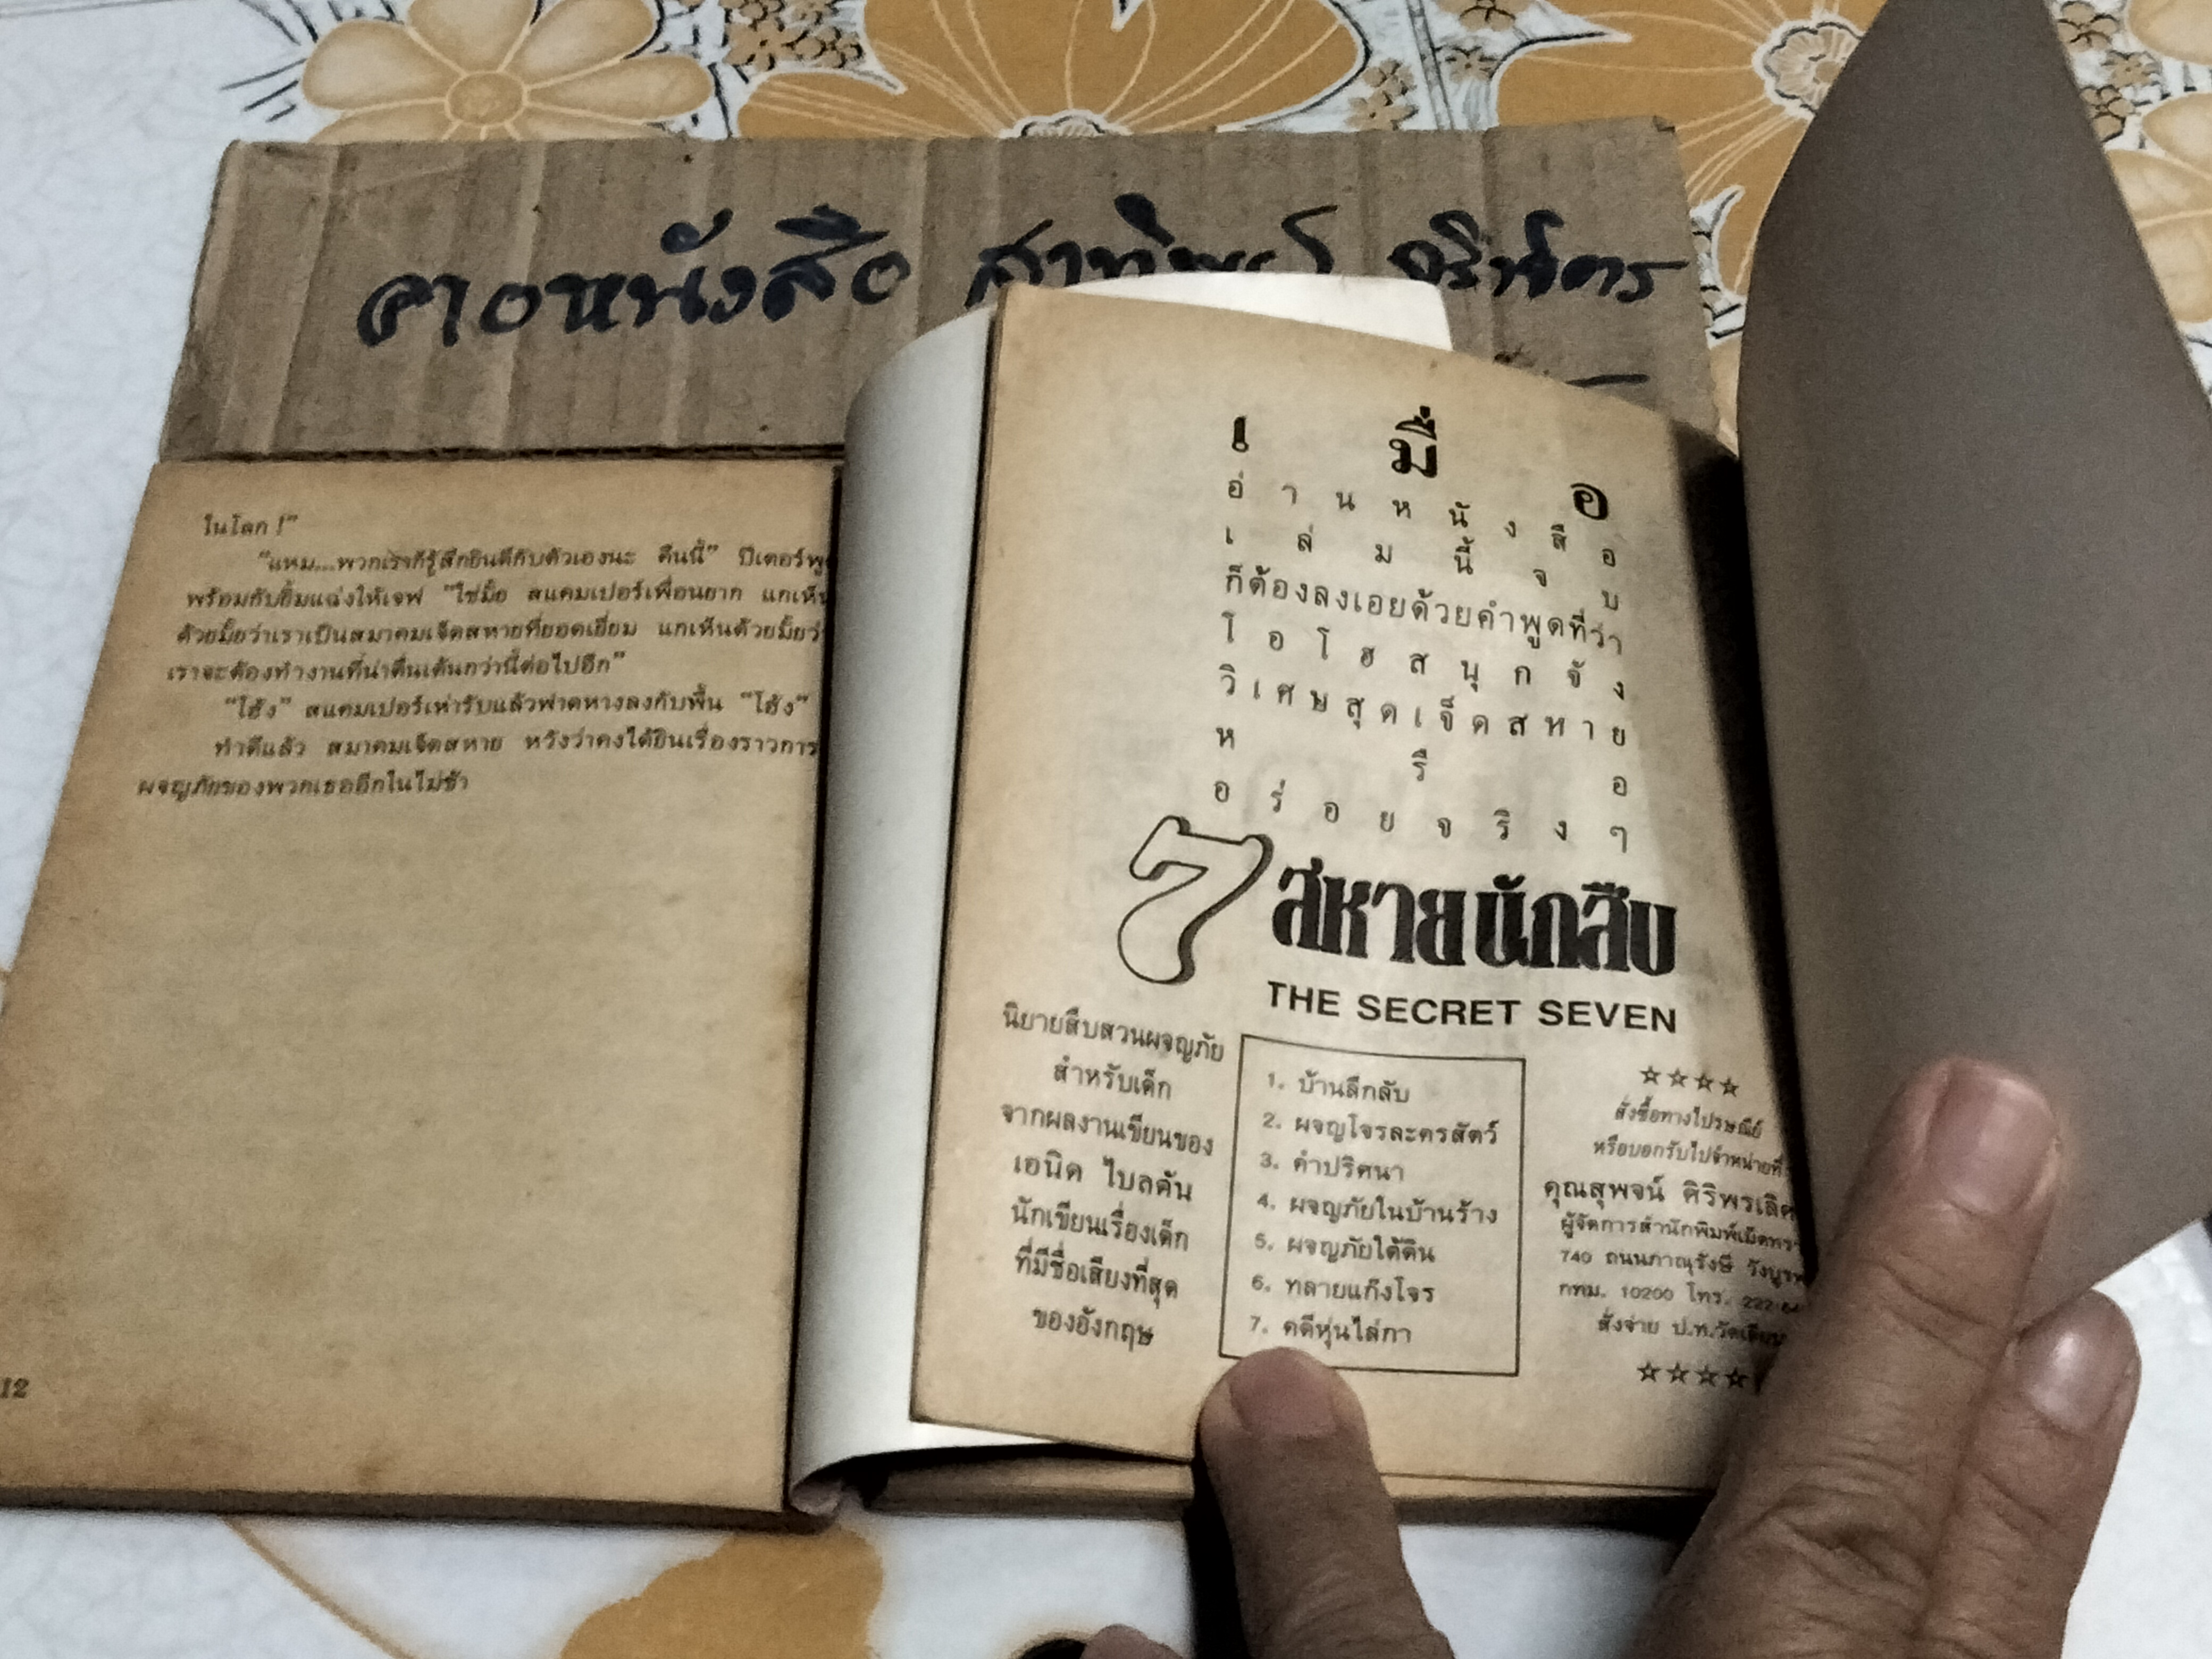 ขายหนังสือ สาทิพย์
ในโลก !”
“แหม...พวกเราก็รู้สึกยินดีกับตัวเองนะ คืนนี้” ปีเตอร์
พร้อมกับยิ้มแฉ่งให้เจฟ “ใช่มั้ย สแคมเปอร์เพื่อนยาก
ด้วยมั้ยว่าเราเป็นสมาคมเจ็ดสหายที่ยอดเยี่ยม แกเห็นด้วยมั้ย
เราจะต้องทำงานที่น่าตื่นเต้นกว่านี้ต่อไปอีก”
“โฮ้ง” สแคมเปอร์เห่ารับแล้วฟาดหางลงกับพื้น “โฮ้ง”
ทำดีแล้ว สมาคมเจ็ดสหาย หวังว่าคงได้ยินเรื่องราวการ
ผจญภัยของพวกเธออีกในไม่ช้า
12
เมื่อ
อ่านหนังสือ
เล่มนี้จบ
ก็ต้องลงเอยด้วยคำพูดที่ว่า
โอโฮสนุกจัง
วิเศษสุดเจ็ดสหาย
หรือ
อร่อยจริงๆ
7 สหายนักสืบ
THE SECRET SEVEN
นิยายสืบสวนผจญภัย
สำหรับเด็ก
จากผลงานเขียนของ
เอนิด ไบลตัน
นักเขียนเรื่องเด็ก
ที่มีชื่อเสียงที่สุด
ของอังกฤษ
1. บ้านลึกลับ
2. ผจญโจรละครสัตว์
3. คำปริศนา
4. ผจญภัยในบ้านร้าง
5. ผจญภัยใต้ดิน
6. ทลายแก๊งโจร
7. คดีหุ่นไล่กา
☆☆☆☆
สั่งซื้อทางไปรษณีย์
หรือบอกรับไปจำหน่ายที่
คุณสุพจน์ ศิริพรเลิศ
ผู้จัดการสำนักพิมพ์เม็ดทราย
740 ถนนภาณุรังษี วังบูรพา
กทม. 10200 โทร. 222
สั่งจ่าย ป.ท.วัดเลียบ
☆☆☆☆